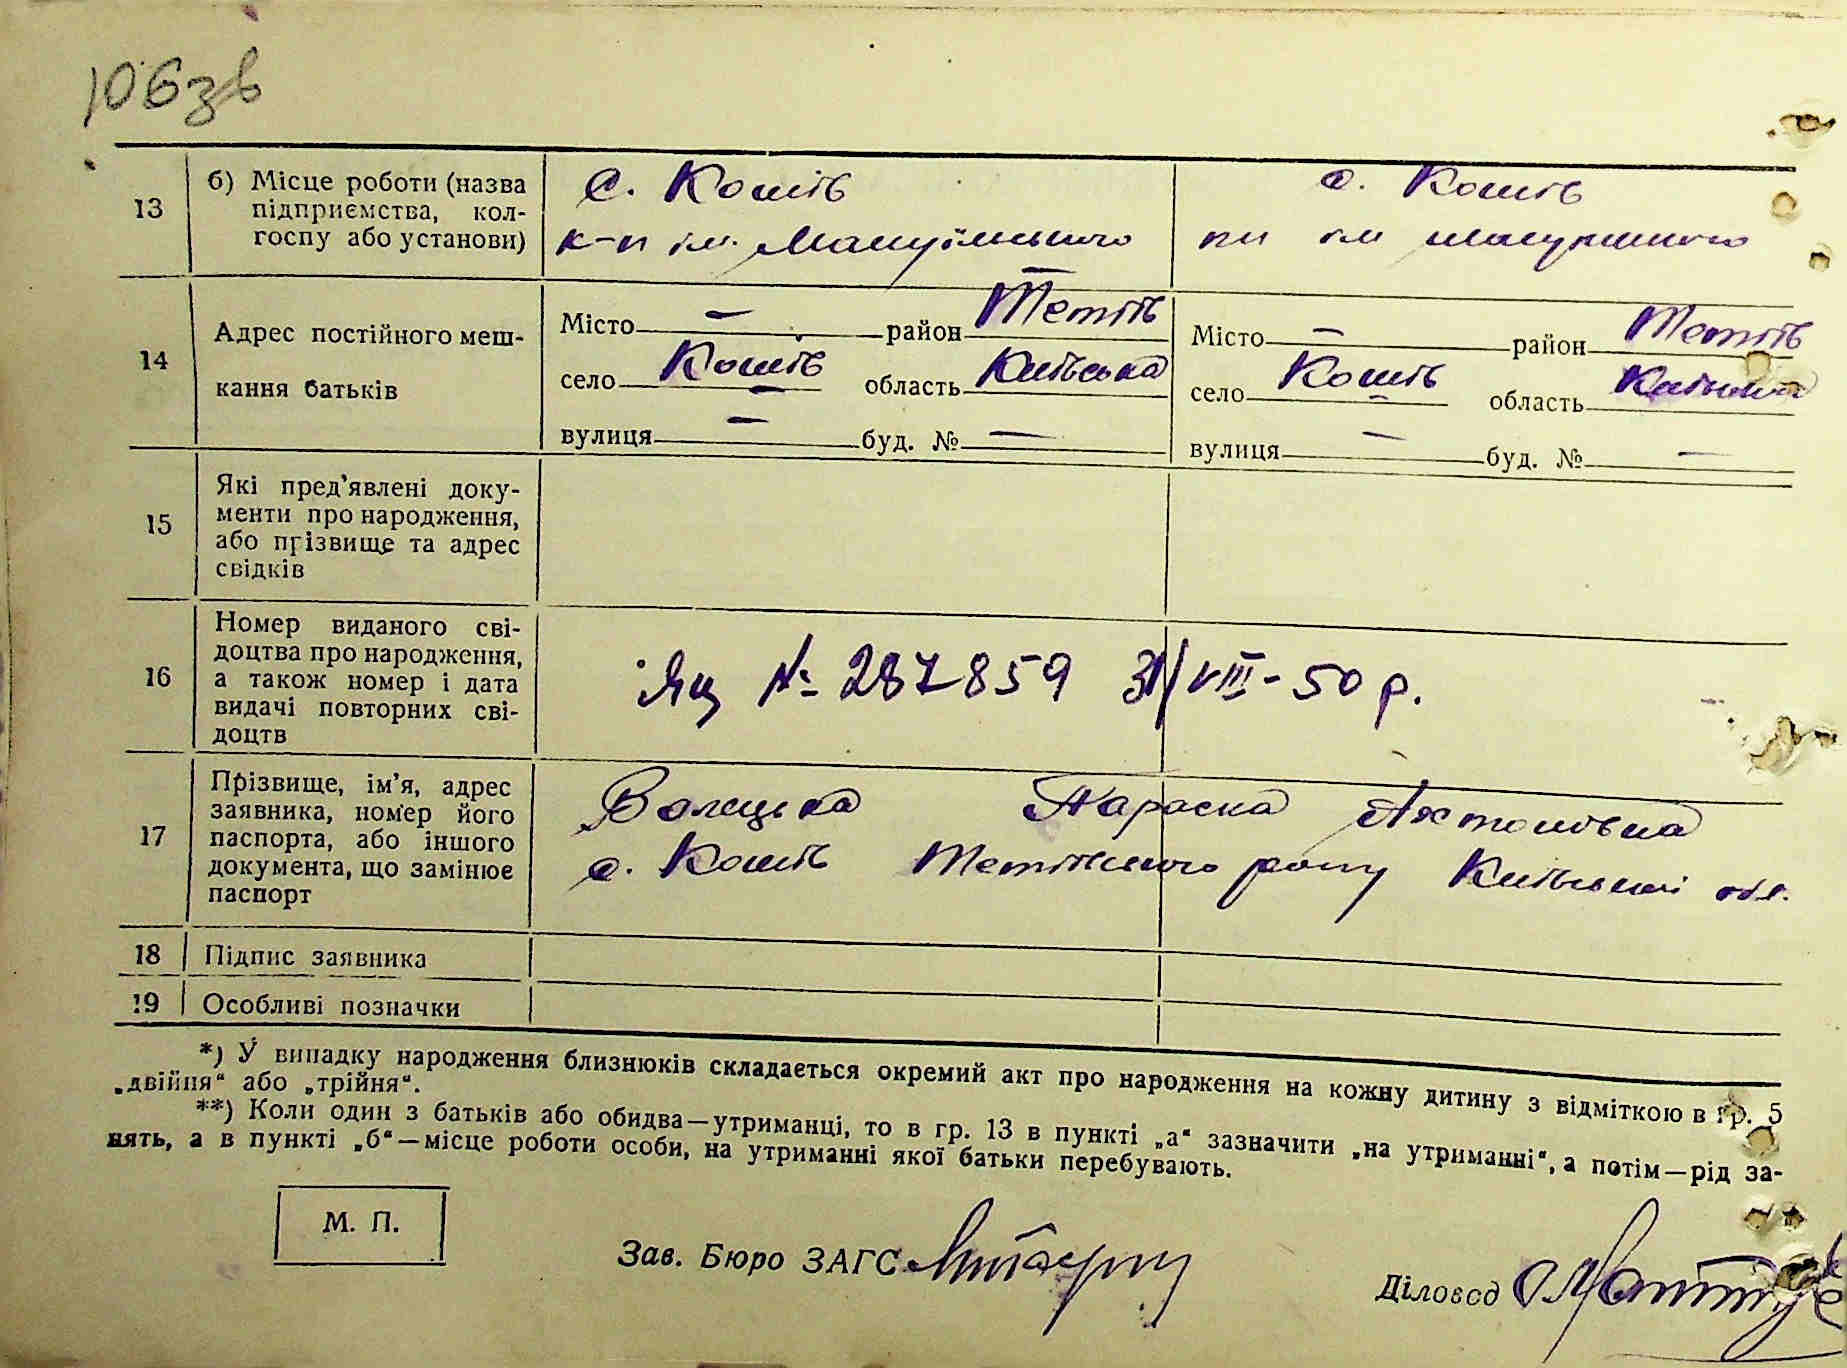 106зв
13 б) Місце роботи (назва підприємства, кол-госпу або установи)
с. Кошів
к-п ім. Мануїльського
с. Кошів
ім
14 Адрес постійного меш-
кання батьків
Місто — район Тетіїв
село Кошів область Київська
вулиця — буд. № —
Місто — район Тетіїв
село Кошів область Київська
вулиця — буд. № —
15 Які пред'явлені доку-
менти про народження,
або прізвище та адрес
свідків
16 Номер виданого сві-
доцтва про народження,
а також номер і дата
видачі повторних сві-
доцтв
ЯЦ № 287859 31/VIII-50 р.
17 Прізвище, ім'я, адрес
заявника, номер його
паспорта, або іншого
документа, що замінює
паспорт
Волицька Параска Антонівна
с. Кошів Тетіївського р-ну Київської обл.
18 Підпис заявника
19 Особливі позначки
*) У випадку народження близнюків складається окремий акт про народження на кожну дитину з відміткою в гр. 5
„двійня“ або „трійня“.
**) Коли один з батьків або обидва—утриманці, то в гр. 13 в пункті „а“ зазначити „на утриманні“, а потім—рід за-
нять, а в пункті „б“—місце роботи особи, на утриманні якої батьки перебувають.
М. П.
Зав. Бюро ЗАГС
Діловод